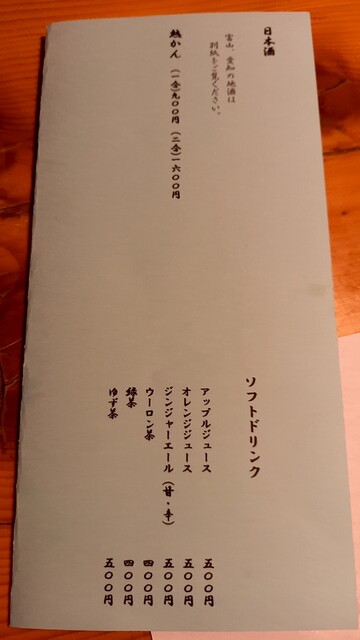 日本酒
富山、愛知の地酒は
別紙をご覧ください。
熱かん （一合）九〇〇円 （二合）一六〇〇円
ソフトドリンク
アップルジュース 五〇〇円
オレンジジュース 五〇〇円
ジンジャーエール（甘・辛） 五〇〇円
ウーロン茶 四〇〇円
緑茶 四〇〇円
ゆず茶 五〇〇円